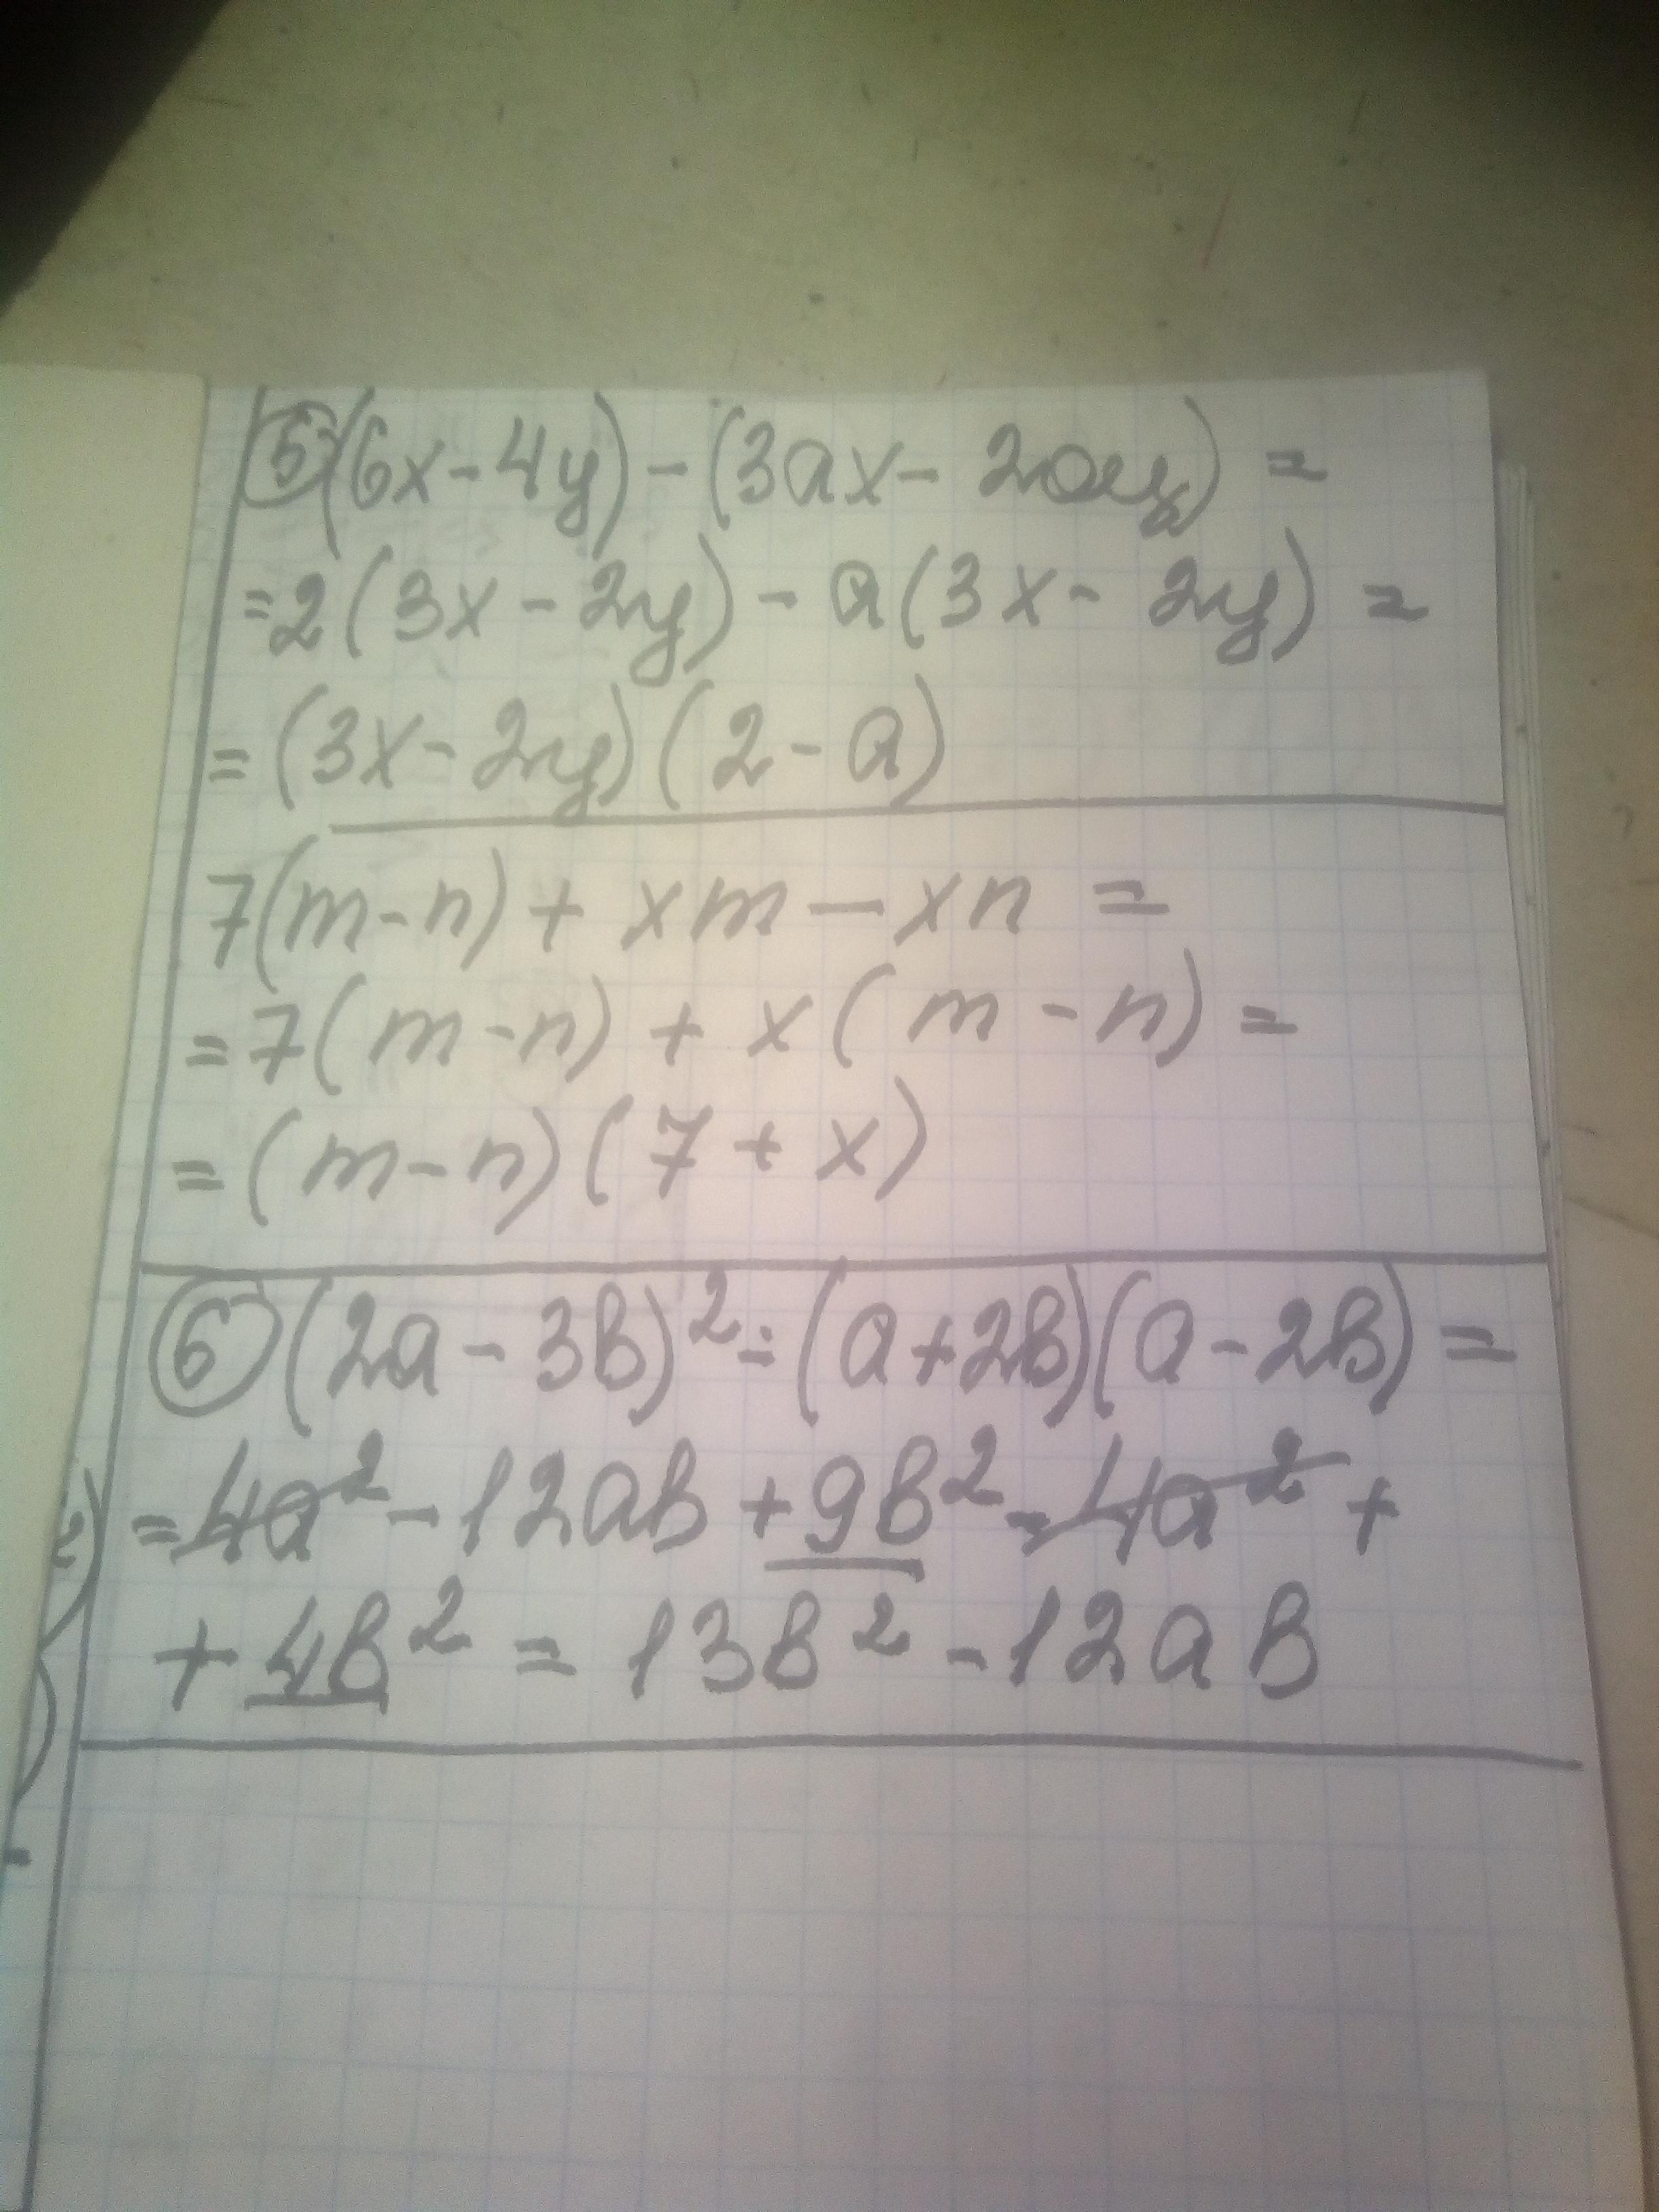 ⑤(6x-4y)-(3ax-2ay)=
=2(3x-2y)-a(3x-2y)=
=(3x-2y)(2-a)
7(m-n)+xm-xn=
=7(m-n)+x(m-n)=
=(m-n)(7+x)
⑥(2a-3b)²-(a+2b)(a-2b)=
=4a²-12ab+9b²-4a²+
+4b²=13b²-12ab